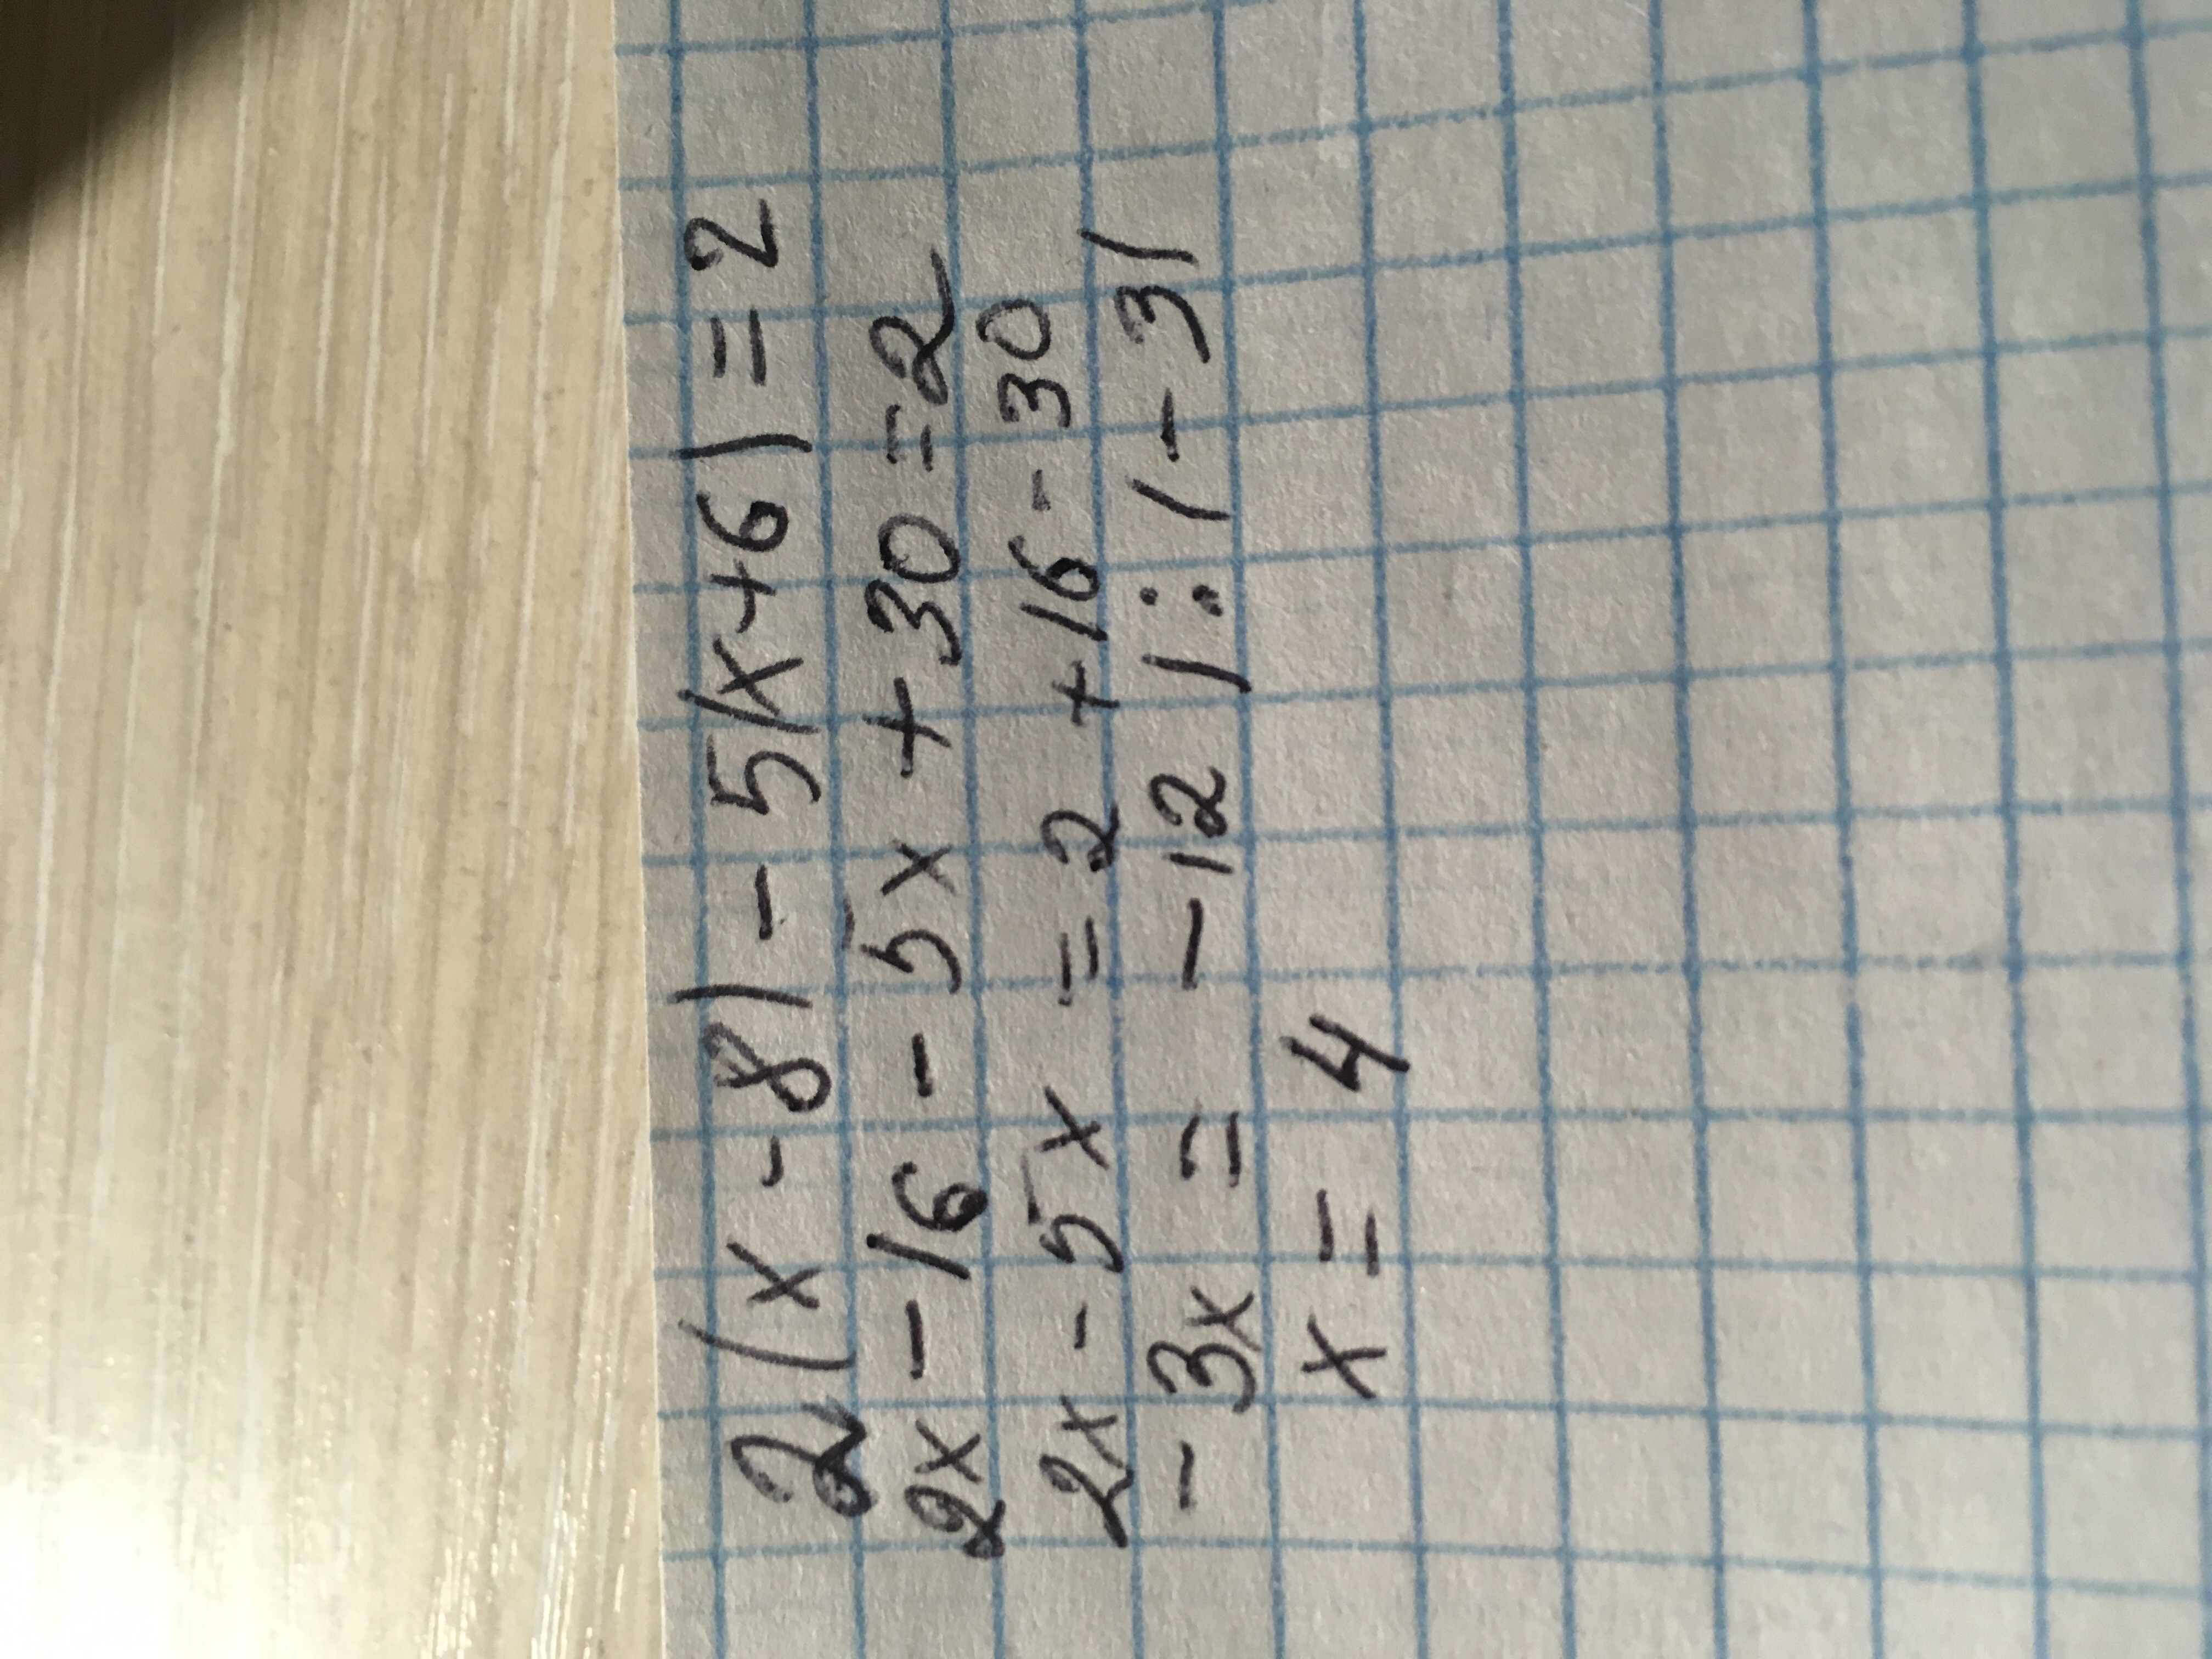 2(x-8)-5(x+6)=2
2x-16-5x+30=2
2x-5x=2+16-30
-3x=-12 |:(-3)
x=4